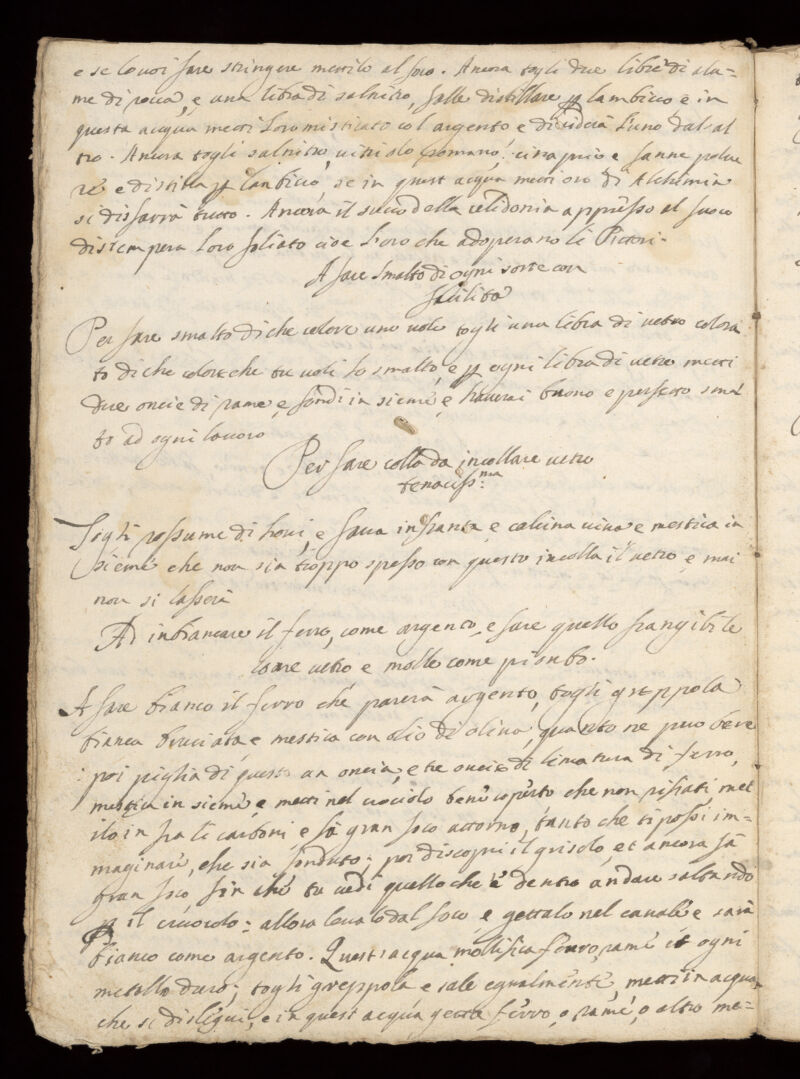 e se lo voi fare stringere mettilo al foco. Ancora togli due libre di alu=
me di rocca, e una libra di salnitro, falle distillare p lambicco e in
questa acqua metti l'oro misticato col argento e dividerà l'uno dal al
tro. Ancora togli salnitro, vitriolo romano, e fanne polve
re e distilla p lambicco, se in quest acqua metti oro di Alchimia
si disfarrà tutto. Ancora il succo della celidonia appresso al fuoco
distempera l'oro foliato cioè l'oro che adoperano li Pittori.
A fare smalto di ogni sorte con
facilità
Per fare smalto di che colore uno vole togli una libra di vetro colora
to di che colore che tu voli lo smalto, e p ogni libra di vetro metti
due oncie di rame e fondi in sieme, e haverai buono e perfetto smal
to ad ogni lavoro
Per fare colla da incollare vetro
tenaciss:ma
Togli rossume di hovi, e fava infranta e calcina viva e mestica in
sieme che non sia troppo spesso con questo incolla il vetro e mai
non si lasserà
Ad inbiancare il ferro, come argento, e fare quello frangibile
come vetro e molle come piombo.
A fare bianco il ferro che parerà argento, togli greppola
bianca bruciata e mestica con olio di oliva, quanto ne può bere
poi piglia di questo una oncia, e tre oncie di limatura di ferro,
mestica in sieme, e metti nel crociolo bene coperto che non rifiati met
tilo in fra li carboni e fà gran foco attorno, tanto che ti possi im=
maginare, che sia fonduto; poi discopri il grisolo, et ancora fà
gran foco, fin che tu vedi quello che è dentro andare saltando
p il crociolo: allora levalo dal foco, e gettalo nel canale e sarà
bianco come argento. Quest acqua mollifica ferro, rame et ogni
metallo duro; togli greppola e sale egualmente, metti in acqua
che si disligui, e in quest acqua getta ferro, o rame, o altro me=